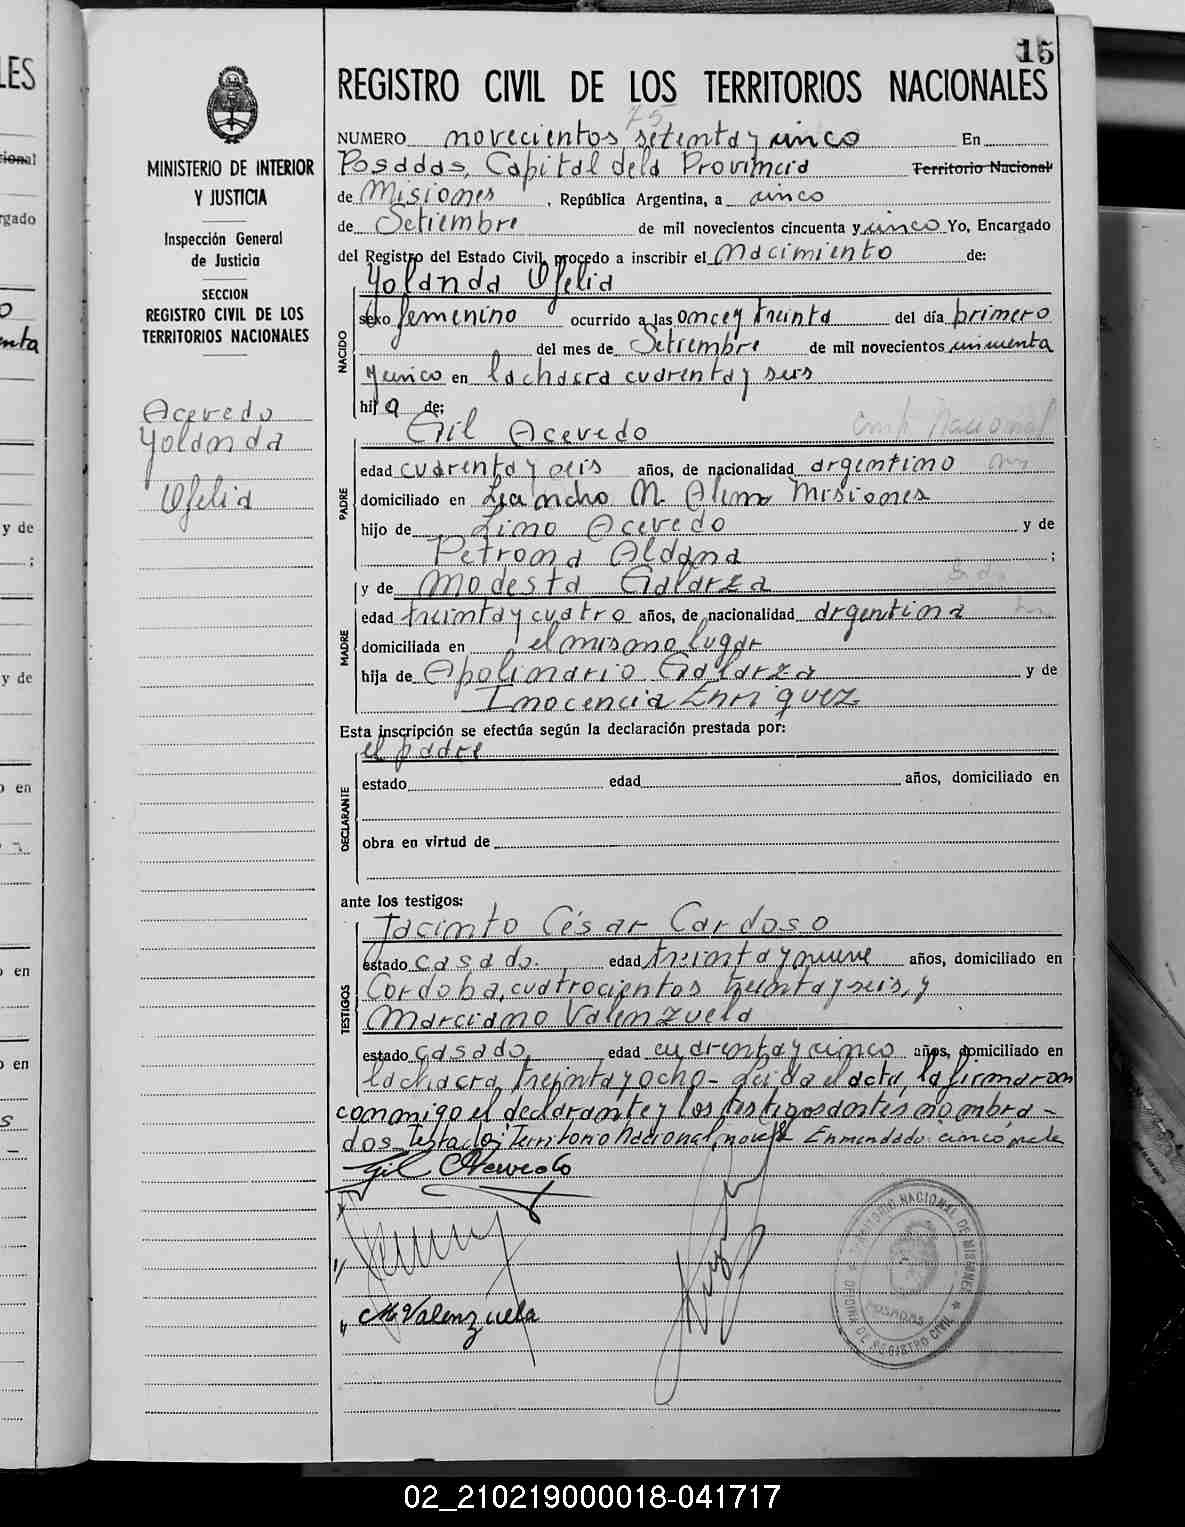 15
REGISTRO CIVIL DE LOS TERRITORIOS NACIONALES
75
NUMERO novecientos setenta y cinco En
Posadas, Capital de la Provincia Territorio Nacional
de Misiones, República Argentina, a cinco
de Setiembre de mil novecientos cincuenta y cinco Yo, Encargado
del Registro del Estado Civil, procedo a inscribir el Nacimiento de:
Yolanda Ofelia
NACIDO
sexo femenino ocurrido a las once y treinta del día primero
del mes de Setiembre de mil novecientos cincuenta
y cinco en la chacra cuarenta y seis
hija de:
Gil Acevedo
PADRE
edad cuarenta y seis años, de nacionalidad argentino
domiciliado en Leandro N. Alem Misiones
hijo de Lino Acevedo y de
Petrona Aldana ;
y de Modesta Galarza
MADRE
edad treinta y cuatro años, de nacionalidad argentina
domiciliada en el mismo lugar
hija de Apolinario Galarza y de
Inocencia Enriquez
Esta inscripción se efectúa según la declaración prestada por:
el padre
DECLARANTE
estado edad años, domiciliado en
obra en virtud de
ante los testigos:
Jacinto César Cardoso
TESTIGOS
estado casado. edad treinta y nueve años, domiciliado en
Cordoba, cuatrocientos treinta y seis, y
Marciano Valenzuela
estado casado, edad cuarenta y cinco años, domiciliado en
la chacra, treinta y ocho - Leida el acta, la firmaron
conmigo el declarante y los testigos antes nombra-
dos Testado: Territorio Nacional, Enmendado: cinco
Gil Acevedo
M. Valenzuela
TERRITORIO NACIONAL DE MISIONES
POSADAS
OFICINA DE REGISTRO CIVIL
MINISTERIO DE INTERIOR
Y JUSTICIA
Inspección General
de Justicia
SECCION
REGISTRO CIVIL DE LOS
TERRITORIOS NACIONALES
Acevedo
Yolanda
Ofelia
LES
gado
nta
y de
;
y de
en
en
en
02_210219000018-041717